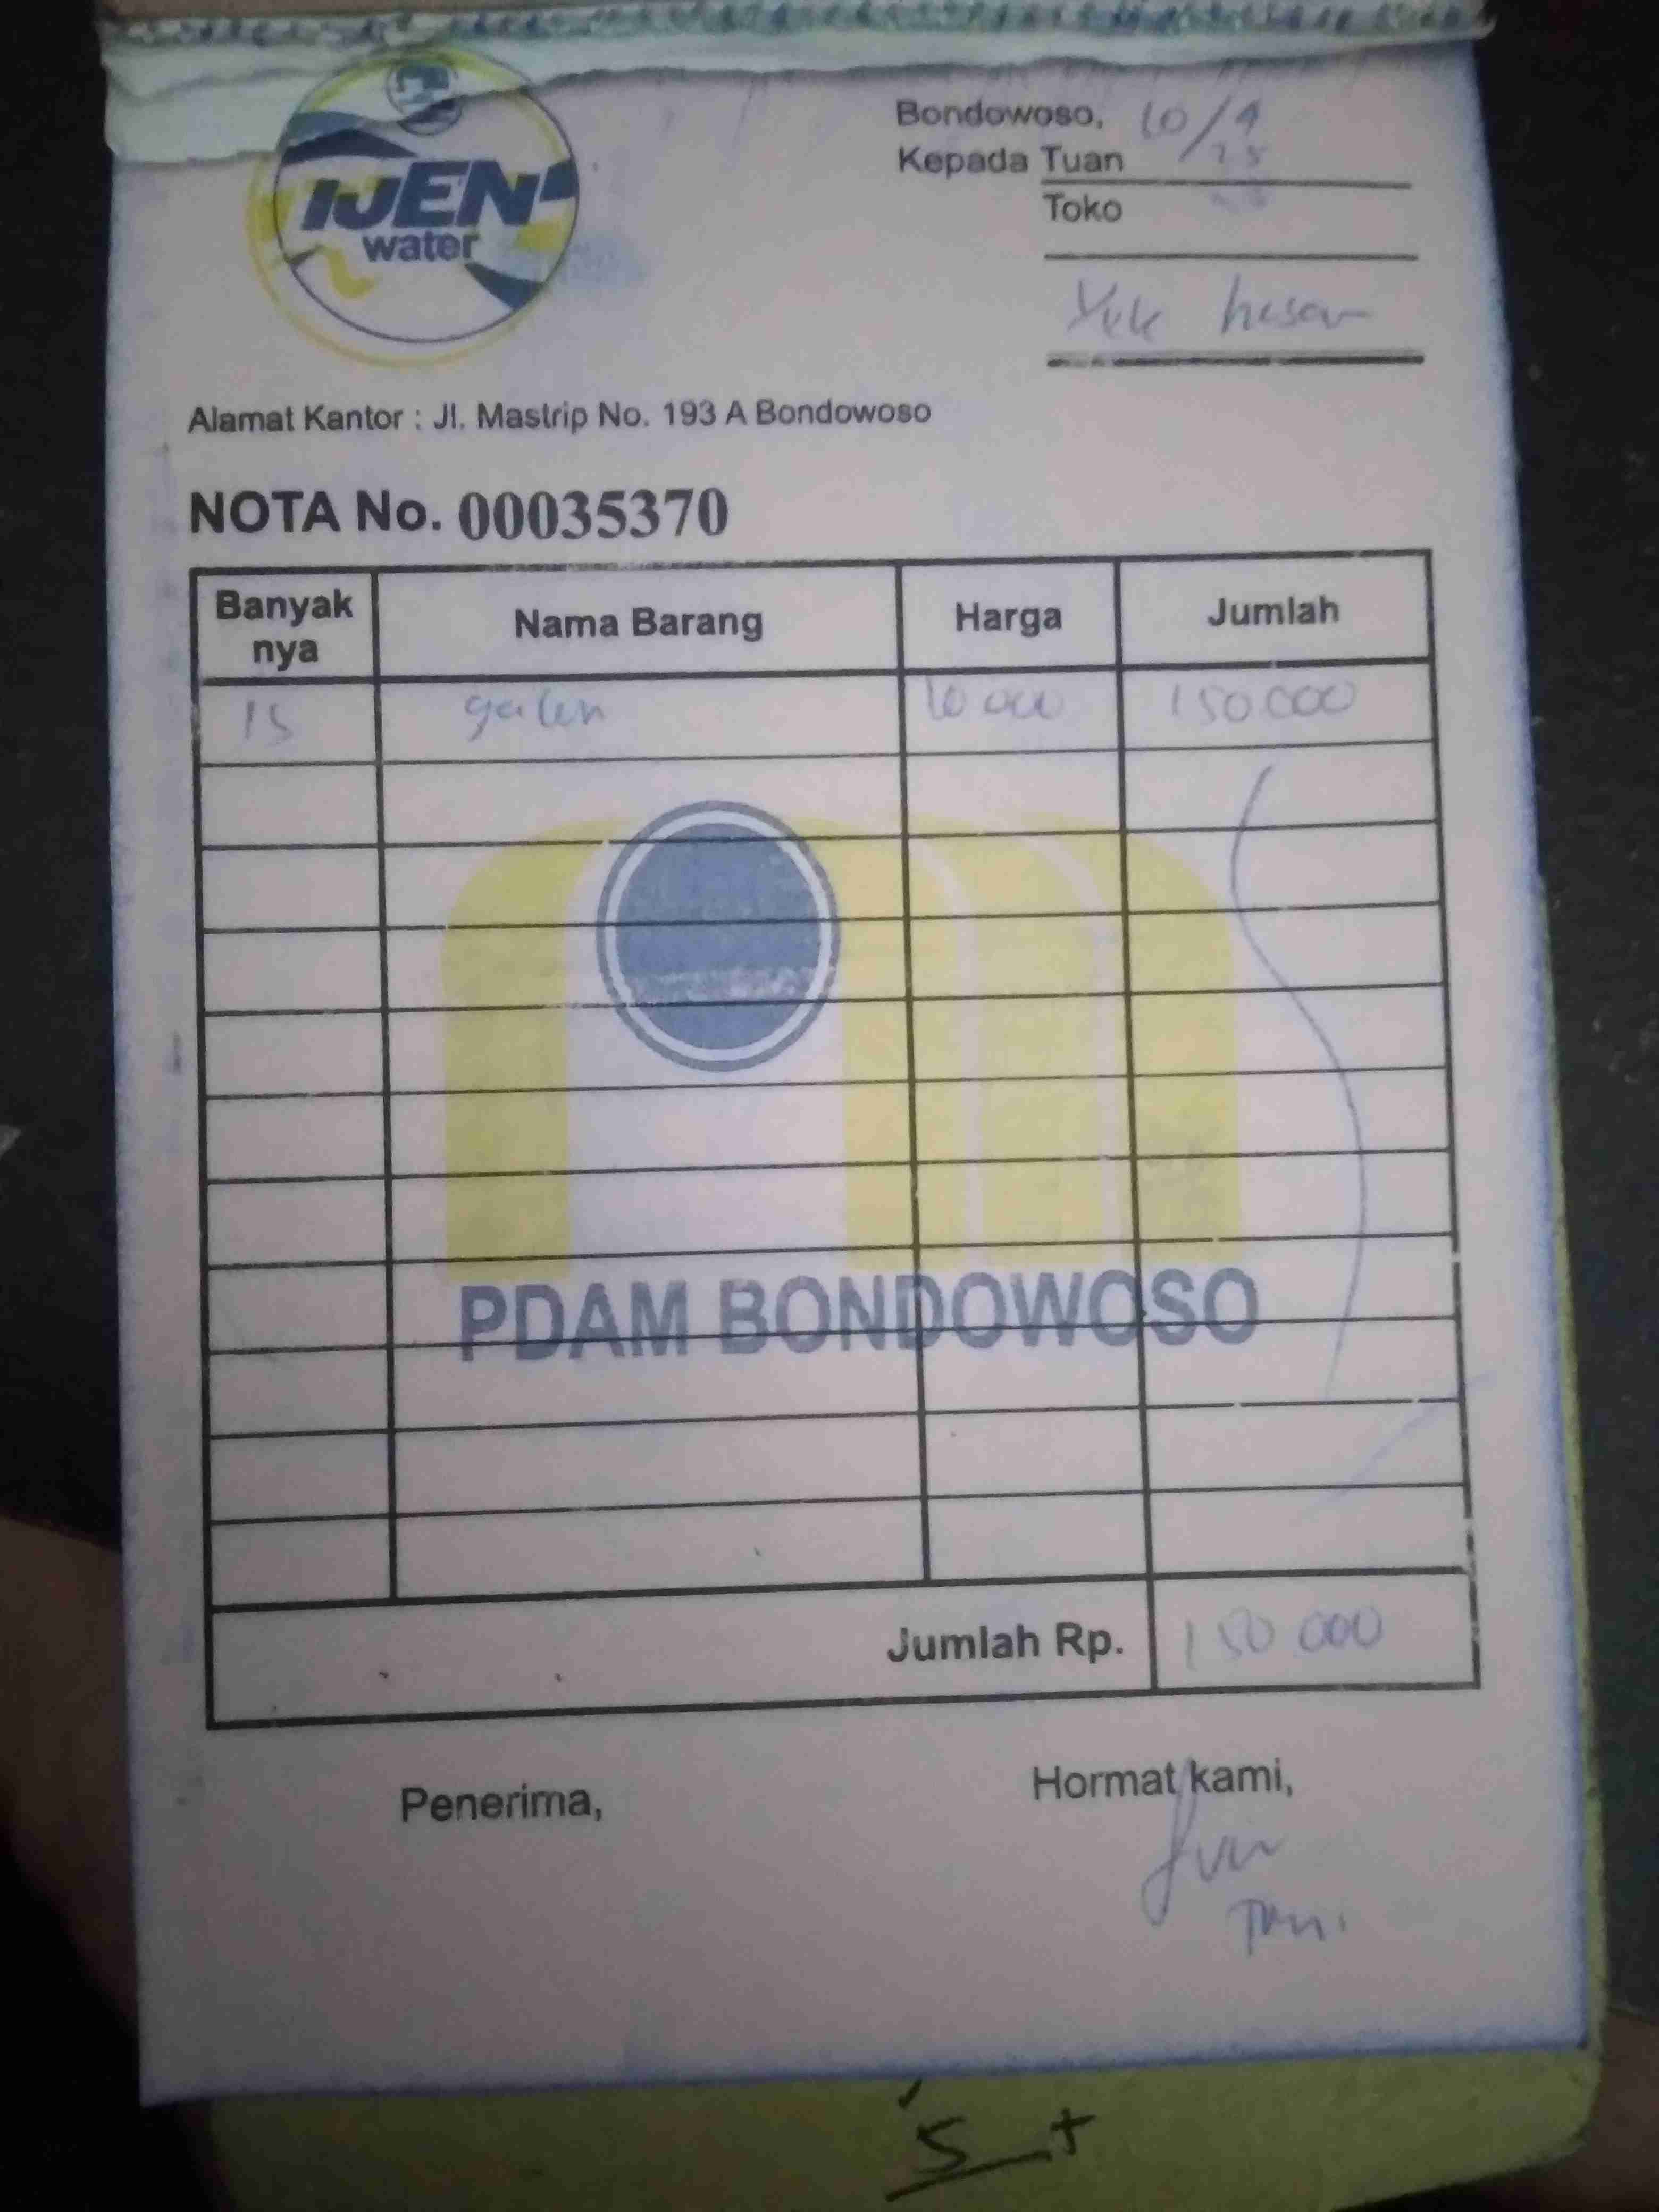 IJEN
water
Bondowoso, 10/9
25
Kepada Tuan
Toko
Yek hasan
Alamat Kantor : Jl. Mastrip No. 193 A Bondowoso
NOTA No. 00035370
Banyak nya Nama Barang Harga Jumlah
15 galon 10 000 150 000
PDAM BONDOWOSO
Jumlah Rp. 150.000
Penerima, Hormat kami,
5 +